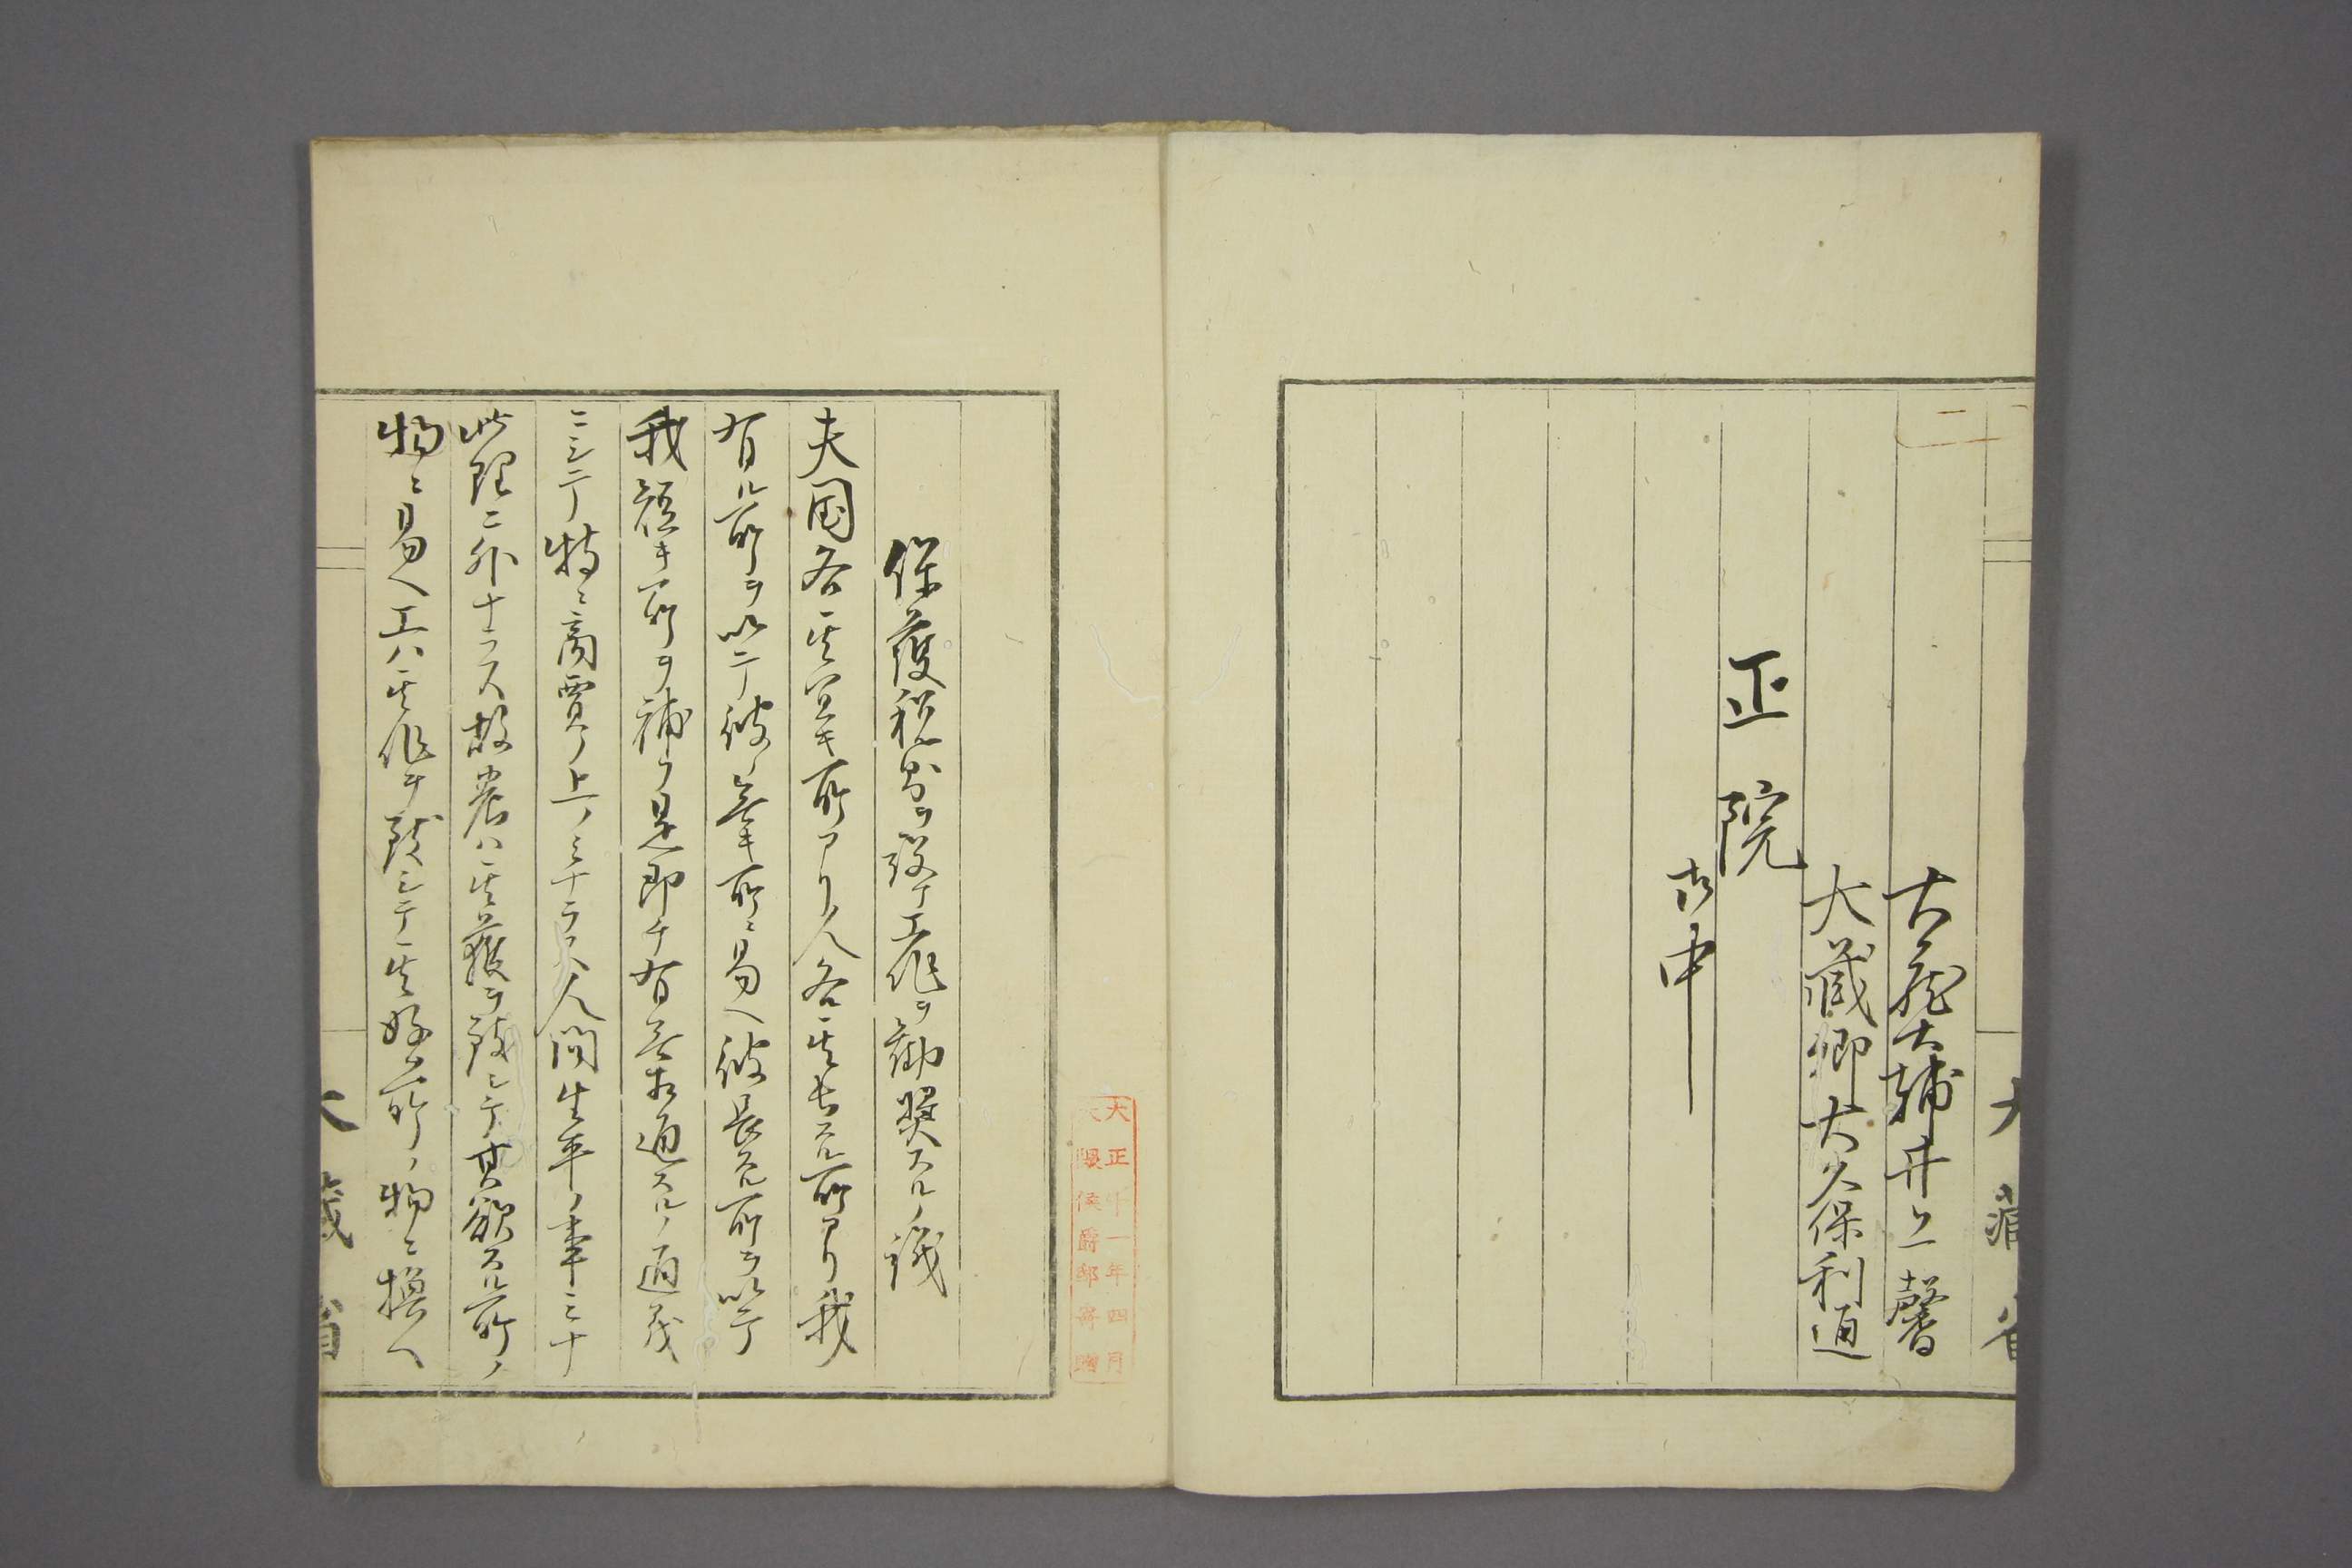 大藏省
大藏大輔井上馨
大藏卿大久保利通
正院
御中
大正十一年四月
大隈侯爵邸寄贈
保護税則ヲ設ケ工作ヲ勧奨スルノ議
夫国各其冥キ所アリ人各其長スル所アリ我
有ル所ヲ以テ彼ノ無キ所ニ易ヘ彼長スル所ヲ以テ
我短キ所ヲ補フ是即チ有無相通スルノ通義
ニシテ特ニ商賈ノ上ノミナラス人間生平ノ事ミナ
此理ニ外ナラス故農ハ其獲ヲ致シテ其欲スル所ノ
物ニ易ヘ工ハ其作ヲ致シテ其好ム所ノ物ニ換ヘ
大藏省